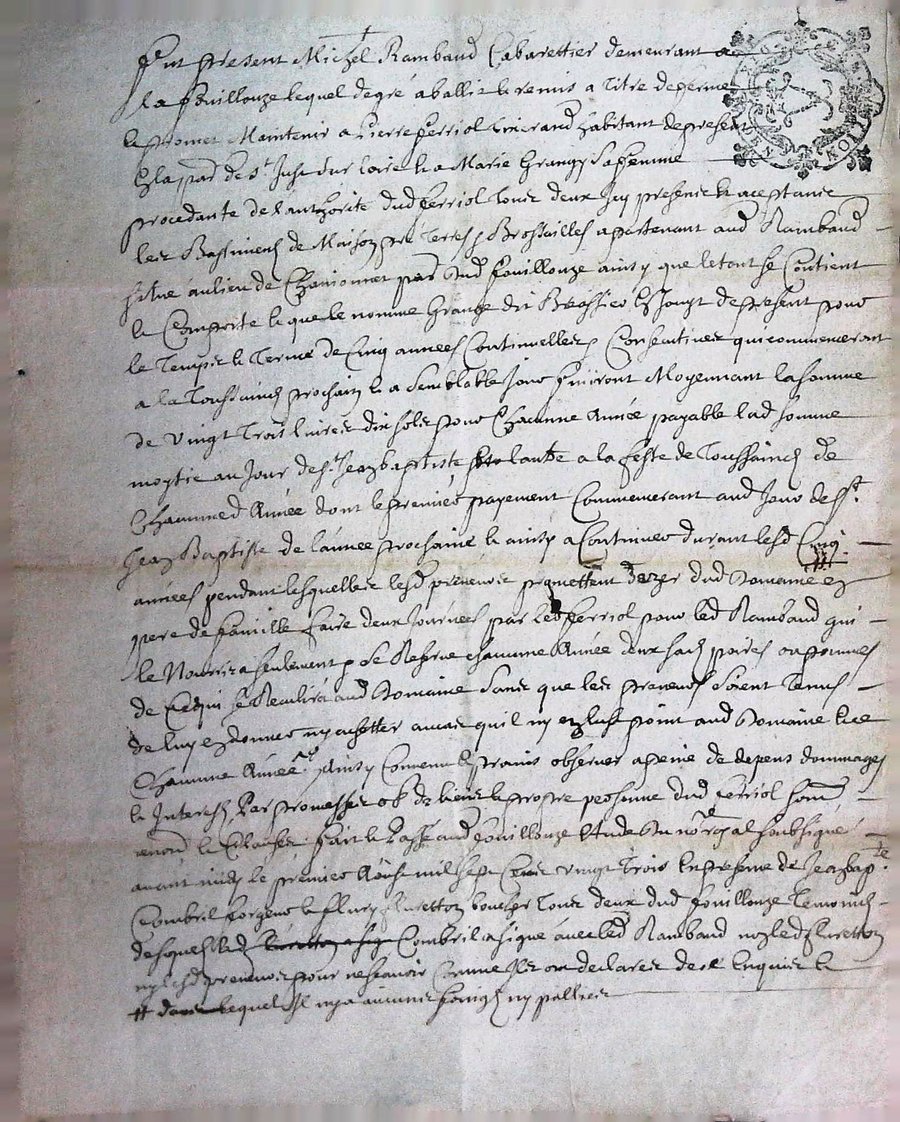 Fut present Michel Rambaud Cabarettier demeurant a
la fouillouze lequel de gré a ballié & remis a titre de ferme
& promet Maintenir a Pierre ferriol habitant de present
en la par de st Just sur loire & a Marie Grangy Sa femme
procedante de l'authorite dud ferriol tous deux Icy presents & aceptants
les Bastiments de Maison pre terres & Brossailles apartenant aud Rambaud
situe au lieu de par dud fouillouze ainsy que le tout se Contient
& Comporte & que le nomme Grange dit Bessieu En Jouyt de present pour
le temps & terme de Cinq années Continuelles & Consecutives qui commenceront
a la toussaincts prochain & a semblable Jour finiront Moyennant la somme
de vingt trois livres dix sols pour Chacune Année payable lad somme
moytie au Jour de st Jean baptiste & lautre a la feste de toussaincts de
Chacune d Année dont le premier payement Commencerant aud Jour de st
Jean Baptiste de l'année prochaine & ainsy a Continuer durant lesd Cinq
années pendant lesquelles lesd preneurs promettent d'user dud Domaine en
pere de famille faire deux Journées par led ferriol pour led Rambaud qui
le Nourrira seulement se Reserve chacune Année deux sacs poires ou pommes
de Ce qui se Receulira aud Domaine Sans que les preneurs soient tenus
de luy en donner ny achetter au cas qu'il ny en eust point aud Domaine
Chacune Année Ainsy Convenu & promis observer a peine de depens dommages
& Interests Par promesses ob de biens & propre personne dud ferriol
renon & Clauses fait & Passé aud fouillouze Etude du nore royal soubsigné
avant midy le premier Aoust mil sept Cens vingt trois En presence de Jean bapte
Combril & fleury fleuretton boucher tous deux dud fouillouze temoincts
desquels led Combril a signé avec led Rambaud non led fleuretton
ny lesd preneurs pour ne scavoir Comme Ils on declarés de ce Enquis &
# dans lequel Il ny a aucuns foings ny pallies